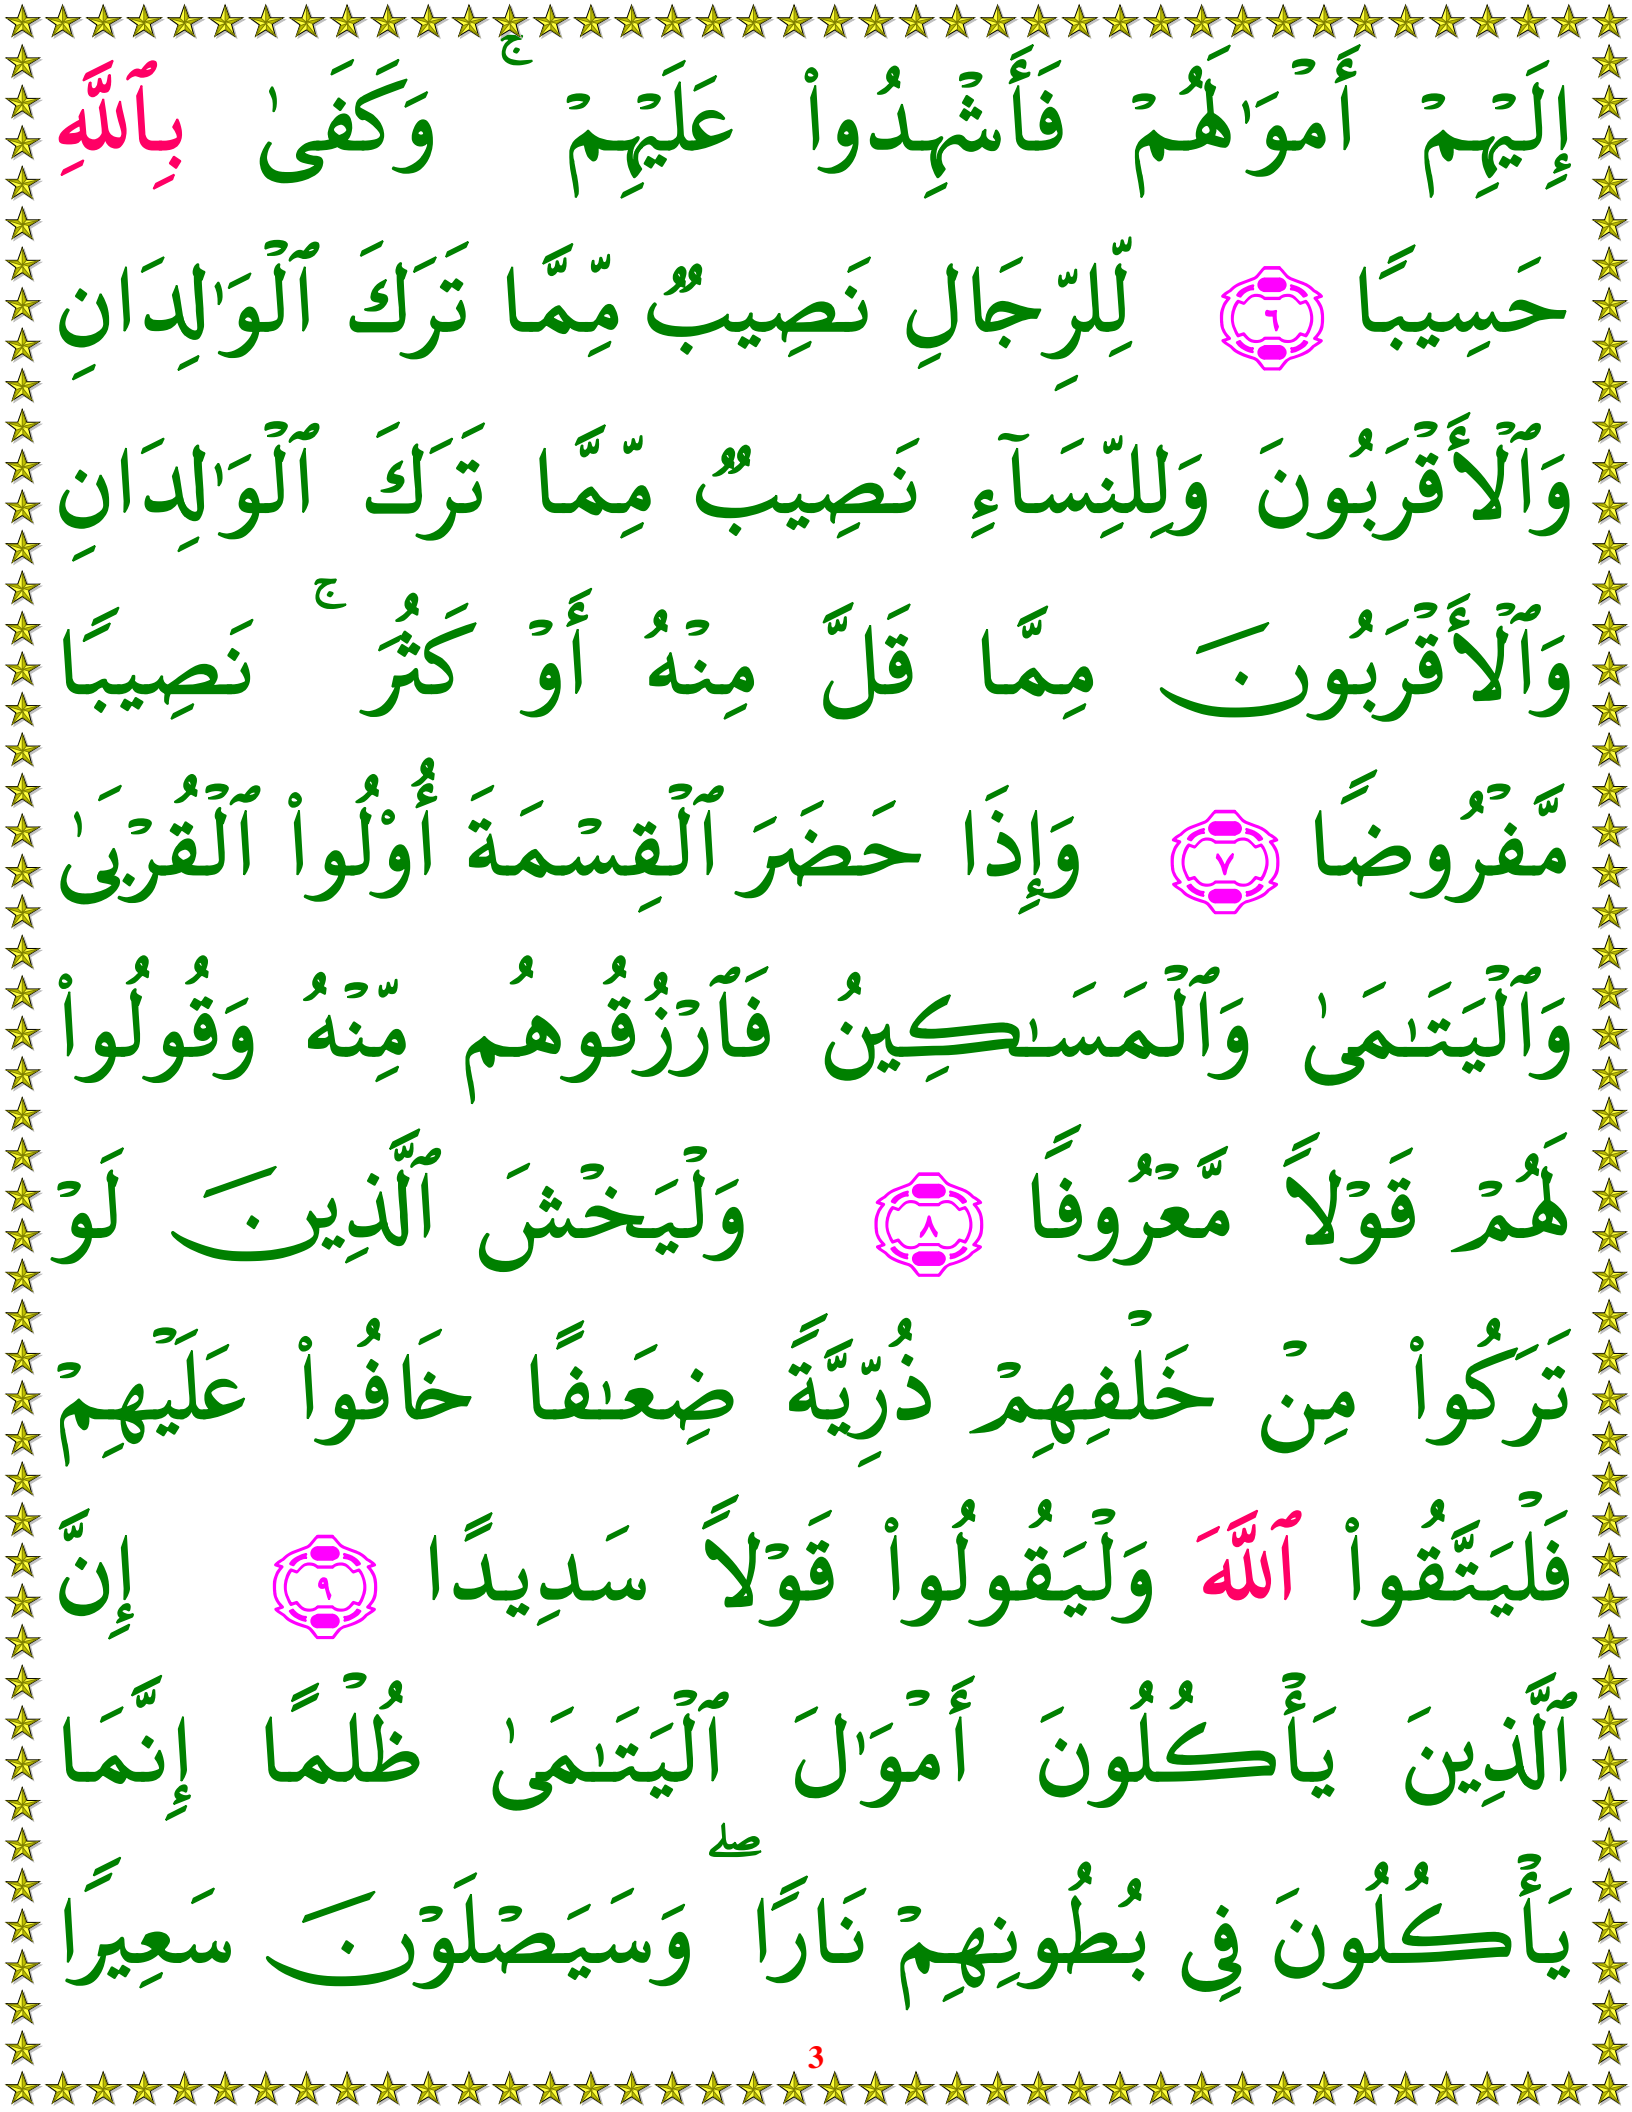 إِلَيۡهِمۡ أَمۡوَٰلَهُمۡ فَأَشۡهِدُواْ عَلَيۡهِمۡ ۚ وَكَفَىٰ بِٱللَّهِ
حَسِيبًا ٦ لِّلرِّجَالِ نَصِيبٌ مِّمَّا تَرَكَ ٱلۡوَٰلِدَانِ
وَٱلۡأَقۡرَبُونَ وَلِلنِّسَآءِ نَصِيبٌ مِّمَّا تَرَكَ ٱلۡوَٰلِدَانِ
وَٱلۡأَقۡرَبُونَ مِمَّا قَلَّ مِنۡهُ أَوۡ كَثُرَ ۚ نَصِيبًا
مَّفۡرُوضًا ٧ وَإِذَا حَضَرَ ٱلۡقِسۡمَةَ أُوْلُواْ ٱلۡقُرۡبَىٰ
وَٱلۡيَتَٰمَىٰ وَٱلۡمَسَٰكِينُ فَٱرۡزُقُوهُم مِّنۡهُ وَقُولُواْ
لَهُمۡ قَوۡلاً مَّعۡرُوفًا ٨ وَلۡيَخۡشَ ٱلَّذِينَ لَوۡ
تَرَكُواْ مِنۡ خَلۡفِهِمۡ ذُرِّيَّةً ضِعَٰفًا خَافُواْ عَلَيۡهِمۡ
فَلۡيَتَّقُواْ ٱللَّهَ وَلۡيَقُولُواْ قَوۡلاً سَدِيدًا ٩ إِنَّ
ٱلَّذِينَ يَأۡكُلُونَ أَمۡوَٰلَ ٱلۡيَتَٰمَىٰ ظُلۡمًا إِنَّمَا
يَأۡكُلُونَ فِي بُطُونِهِمۡ نَارًا ۖ وَسَيَصۡلَوۡنَ سَعِيرًا
3